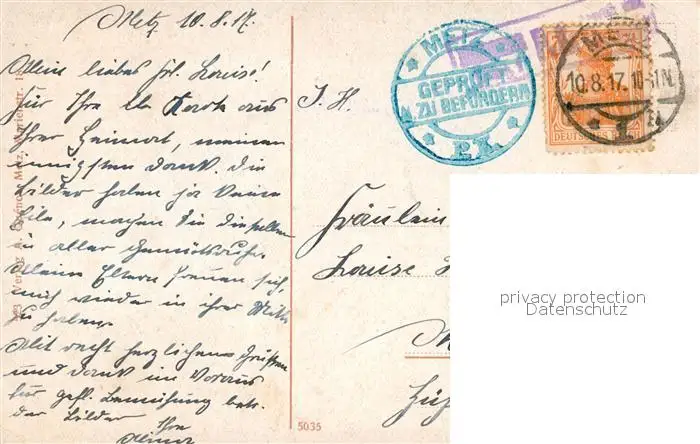 Metz, 10.8.17.
Mein liebes Frl. Louise!
für Ihre lb. Karte aus
Ihrer Heimat, meinen
innigsten Dank. Die
Bilder haben ja keine
Eile, machen Sie dieselben
in aller Gemütsruhe.
Meine Eltern freuen sich,
mich wieder in ihrer Mitte
zu haben.
Mit recht herzlichen Grüßen
und Dank im Voraus
für gefl. Bemühung betr.
der Bilder
Ihre
Verlag A. Metz,
5035
S. H.
Fräulein
Louise
METZ
GEPRÜFT
ZU BEFÖRDERN
P.K.
METZ
10.8.17.
DEUTSCHES
privacy protection
Datenschutz